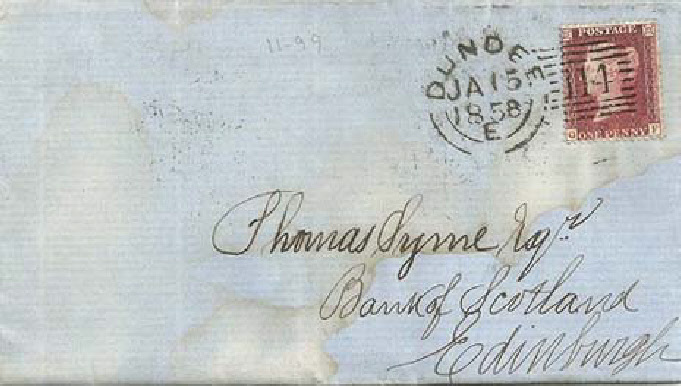 11-99
DUNDEE
JA 15
1858
E
POSTAGE
114
ONE PENNY
Thomas Syme Esqr
Bank of Scotland
Edinburgh